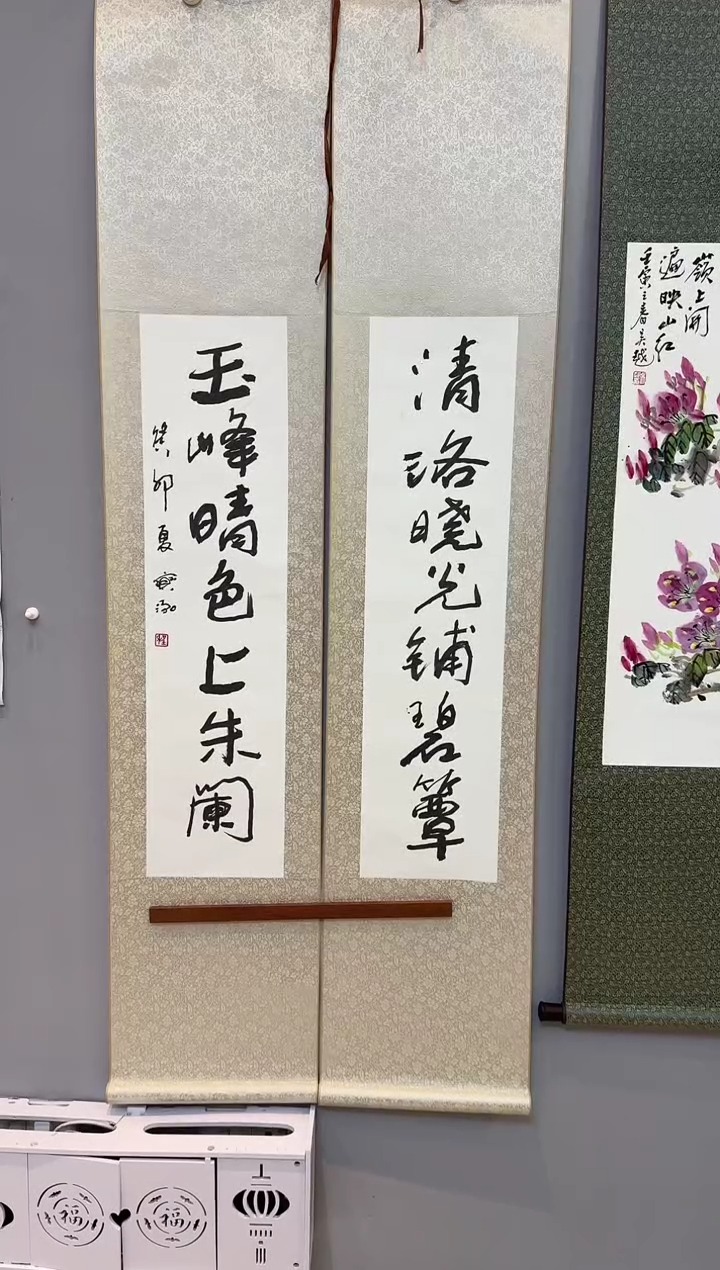 清洛晓光铺碧簟
玉峰晴色上朱阑
癸卯夏
嶺上開
遍映山红
壬寅之春吴越
福
福